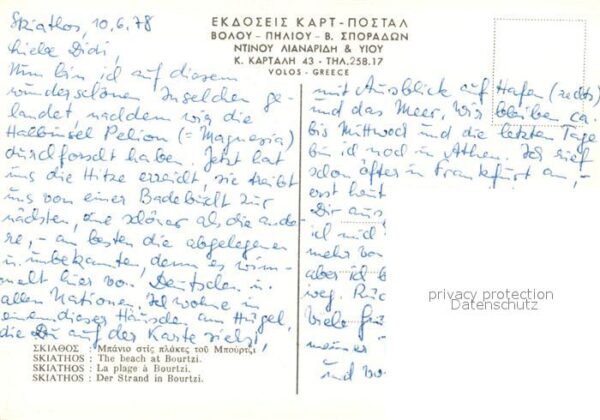 Skiathos, 10.6.78
Liebe Didi,
Nun bin ich auf diesem
wunderschönen Inselchen ge-
landet, nachdem wir die
Halbinsel Pelion (= Magnesia)
durchforscht haben. Jetzt hat
uns die Hitze erreicht, sie treibt
uns von einer Badebucht zur
nächsten, eine schöner als die ande-
re, - am besten die abgelegenen
u. unbekannten, denn es wim-
melt hier von Deutschen u.
allen Nationen. Ich wohne in
einem dieser Häuschen am Hügel,
die Du auf der Karte siehst,
ΣΚΙΑΘΟΣ : Μπάνιο στὶς πλάκες τοῦ Μπούρτζι
SKIATHOS : The beach at Bourtzi.
SKIATHOS : La plage à Bourtzi.
SKIATHOS : Der Strand in Bourtzi.
ΕΚΔΟΣΕΙΣ ΚΑΡΤ - ΠΟΣΤΑΛ
ΒΟΛΟΥ - ΠΗΛΙΟΥ - Β. ΣΠΟΡΑΔΩΝ
ΝΤΙΝΟΥ ΛΙΑΝΑΡΙΔΗ & ΥΙΟΥ
Κ. ΚΑΡΤΑΛΗ 43 - ΤΗΛ. 258.17
VOLOS - GREECE
mit Ausblick auf Hafen (rechts)
und das Meer. Wir bleiben ca.
bis Mittwoch und die letzten Tage
bin ich noch in Athen. Ich rief
schon öfter in Frankfurt an, -
erst heut
Dir aus
ich mich
mehr vo
aber ich b
weg. Rüc
Viele Grü
meiner
und vo
privacy protection
Datenschutz